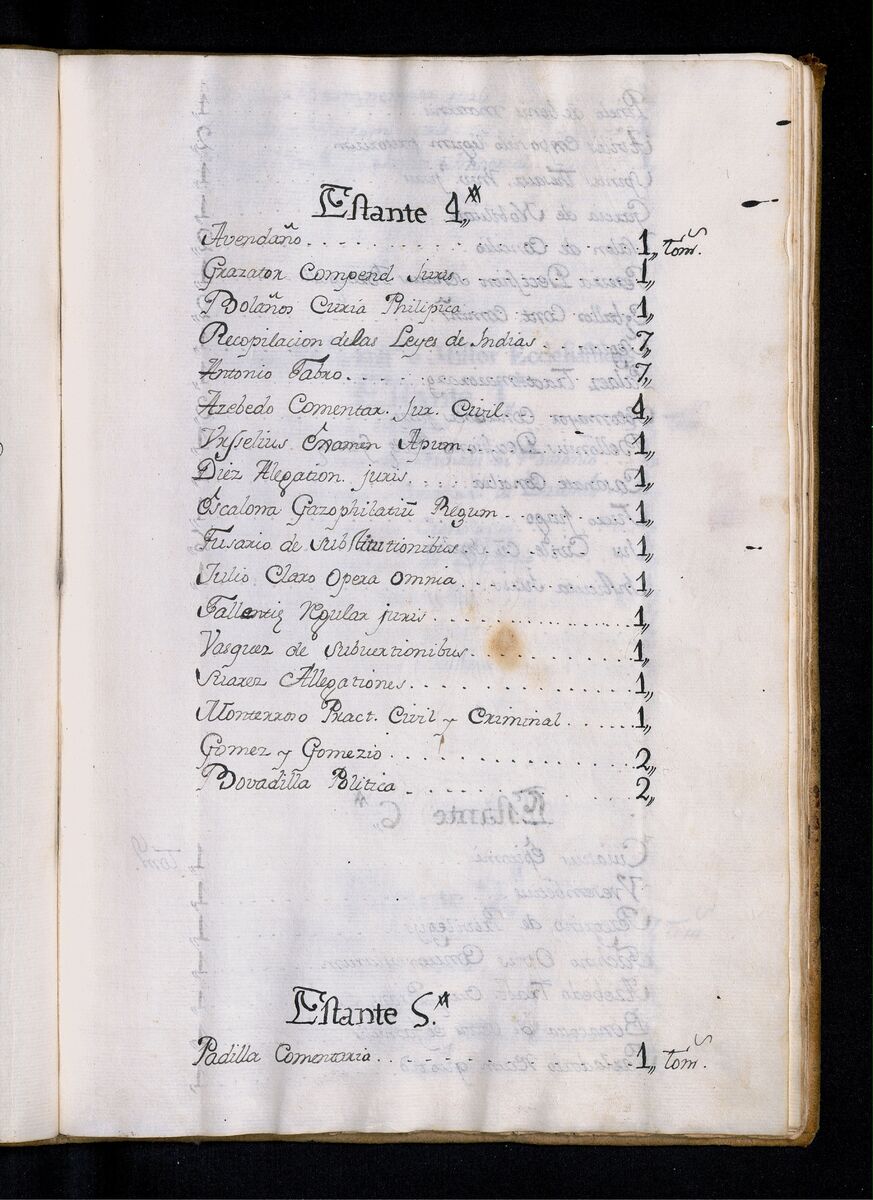 Estante 4,,
Avendaño . . . . . . . . . 1,, tom.s
Grazator Compend Juris 1,,
Bolaños Curia Philipica 1,,
Recopilacion de las Leyes de Indias . . . 7,,
Antonio Fabro . . . . . . 7,,
Azebedo Comentar. Jur. Civil . . . 4,,
Examen Apum . . . 1,,
Diez Alegation. juris . . . . 1,,
Escalona Gazophilatiũ Regum . . . 1,,
Fusario de Substitutionibus . . . 1,,
Julio Claro Opera Omnia . . . 1,,
Regular juris . . . . . . . . 1,,
Vasquez de Subcextionibus . . . . . . . 1,,
Suarez Allegationes . . . . . . . . 1,,
Monterroso Pract. Civil y Criminal . . . . 1,,
Gomez y Gomezio . . . . . . . . . 2,,
Bovadilla Politica . . . . . . . . . 2,,
Estante 5.
Padilla Comentaria . . . . . . . . 1,, tom.s